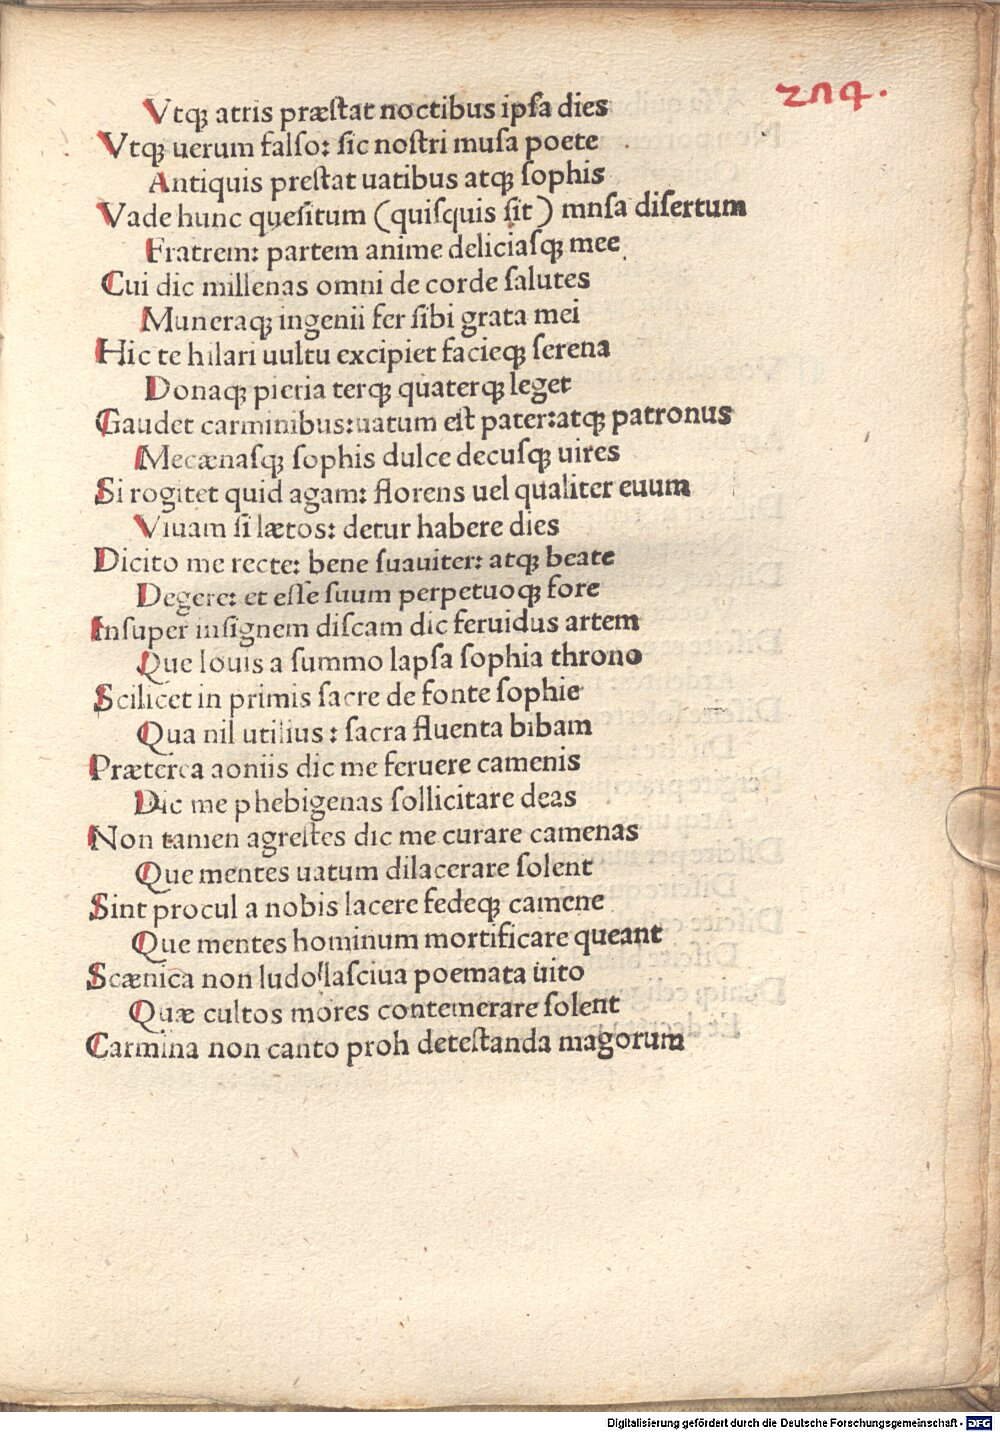 214.
Vtqꝫ atris præſtat noctibus ipſa dies
Vtqꝫ uerum falſo: ſic noſtri muſa poete
Antiquis preſtat uatibus atqꝫ ſophis
Vade hunc queſitum (quiſquis ſit) mnſa diſertum
Fratrem: partem anime deliciaſqꝫ mee.
Cui dic millenas omni de corde ſalutes
Muneraqꝫ ingenii fer ſibi grata mei
Hic te hilari uultu excipiet facieqꝫ ſerena
Donaqꝫ pieria terqꝫ quaterqꝫ leget
Gaudet carminibus: uatum eſt pater: atqꝫ patronus
Mecænaſqꝫ ſophis dulce decuſqꝫ uires
Si rogitet quid agam: florens uel qualiter euum
Viuam ſi lætos: detur habere dies
Dicito me recte: bene ſuauiter: atqꝫ beate
Degere: et eſſe ſuum perpetuoqꝫ fore
Inſuper inſignem diſcam dic feruidus artem
Que Iouis a ſummo lapſa ſophia throno
Scilicet in primis ſacre de fonte ſophie
Qua nil utilius: ſacra fluenta bibam
Præterea aoniis dic me feruere camenis
Dic me phebigenas ſollicitare deas
Non tamen agreſtes dic me curare camenas
Que mentes uatum dilacerare ſolent
Sint procul a nobis lacere fedeqꝫ camene
Que mentes hominum mortificare queant
Scænica non ludo laſciua poemata uito
Quæ cultos mores contemerare ſolent
Carmina non canto proh deteſtanda magorum
Digitalisierung gefördert durch die Deutsche Forschungsgemeinschaft - DFG